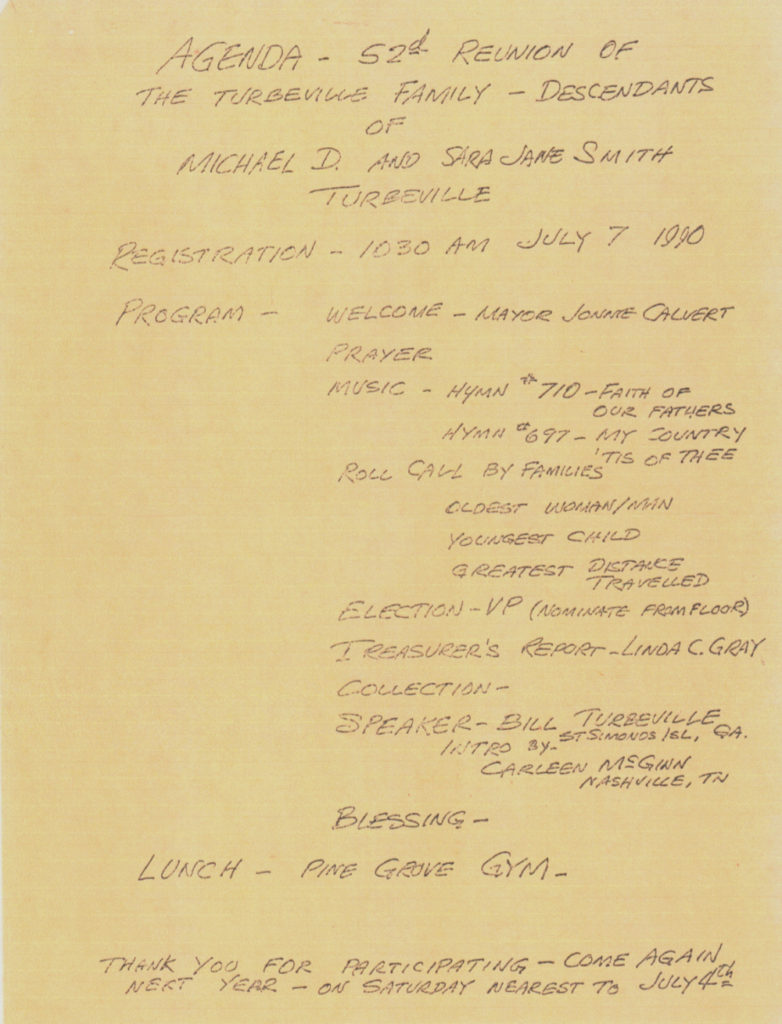 AGENDA - 52d REUNION OF
THE TURBEVILLE FAMILY - DESCENDANTS
OF
MICHAEL D. AND SARA JANE SMITH
TURBEVILLE
REGISTRATION - 1030 AM JULY 7 1990
PROGRAM - WELCOME - MAYOR JONNIE CALVERT
PRAYER
MUSIC - HYMN #710 - FAITH OF
OUR FATHERS
HYMN #697 - MY COUNTRY
'TIS OF THEE
ROLL CALL BY FAMILIES
OLDEST WOMAN/MAN
YOUNGEST CHILD
GREATEST DISTANCE
TRAVELLED
ELECTION - VP (NOMINATE FROM FLOOR)
TREASURER'S REPORT - LINDA C. GRAY
COLLECTION -
SPEAKER - BILL TURBEVILLE
ST SIMONDS ISL, GA.
INTRO BY -
CARLEEN McGINN
NASHVILLE, TN
BLESSING -
LUNCH - PINE GROVE GYM -
THANK YOU FOR PARTICIPATING - COME AGAIN
NEXT YEAR - ON SATURDAY NEAREST TO JULY 4th